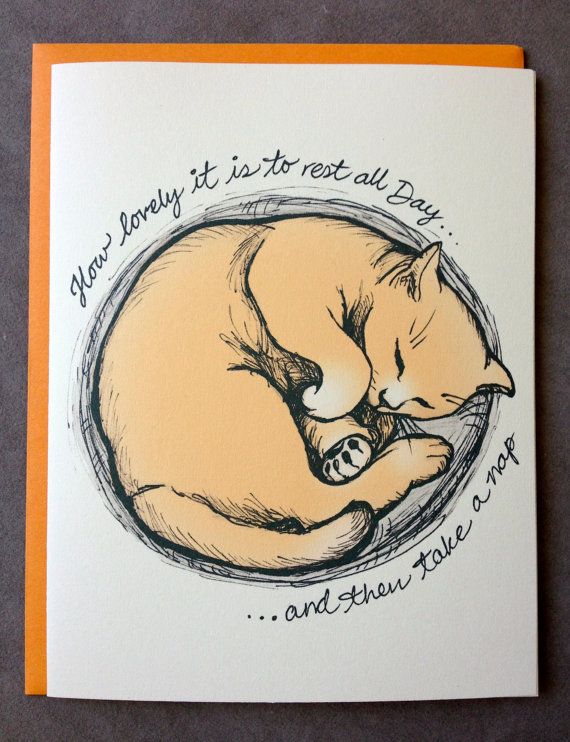 How lovely it is to rest all Day...
...and then take a nap